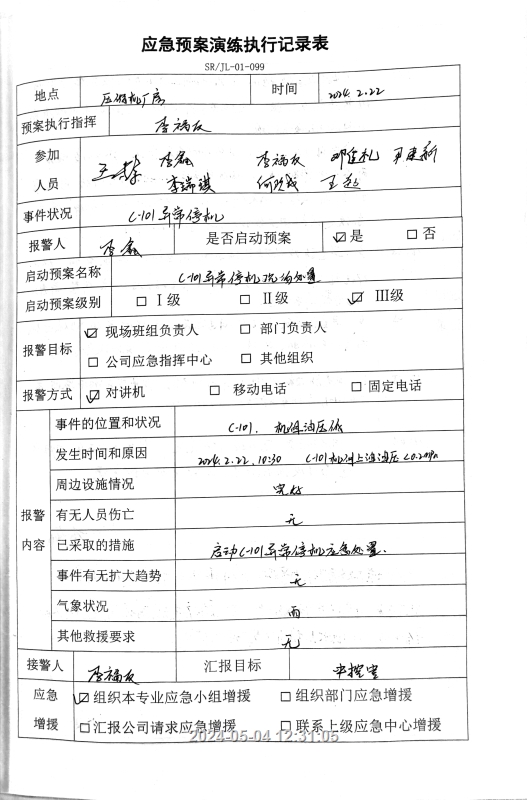 应急预案演练执行记录表
SR/JL-01-099
地点 压缩机厂房 时间 2024.2.22
预案执行指挥 李福友
参加人员 李磊 李福友 邓佳礼 尹建新
李瑞琪 王起
事件状况 C-101异常停机
报警人 李磊 是否启动预案 ☑是 □否
启动预案名称 C-101异常停机现场处置
启动预案级别 □Ⅰ级 □Ⅱ级 ☑Ⅲ级
报警目标 ☑现场班组负责人 □部门负责人
□公司应急指挥中心 □其他组织
报警方式 ☑对讲机 □移动电话 □固定电话
报警内容
事件的位置和状况 C-101. 机体油压低
发生时间和原因 2024.2.22, 10:30 C-101机油压 <0.2MPa
周边设施情况 完好
有无人员伤亡 无
已采取的措施 启动C-101异常停机应急处置.
事件有无扩大趋势 无
气象状况 雨
其他救援要求 无
接警人 李福友 汇报目标 中控室
应急增援 ☑组织本专业应急小组增援 □组织部门应急增援
□汇报公司请求应急增援 □联系上级应急中心增援
2024-05-04 12:31:05